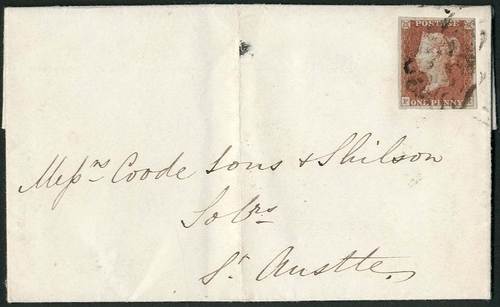 POSTAGE
ONE PENNY
Messrs Coode Sons & Shilson
Solrs
St. Austle.